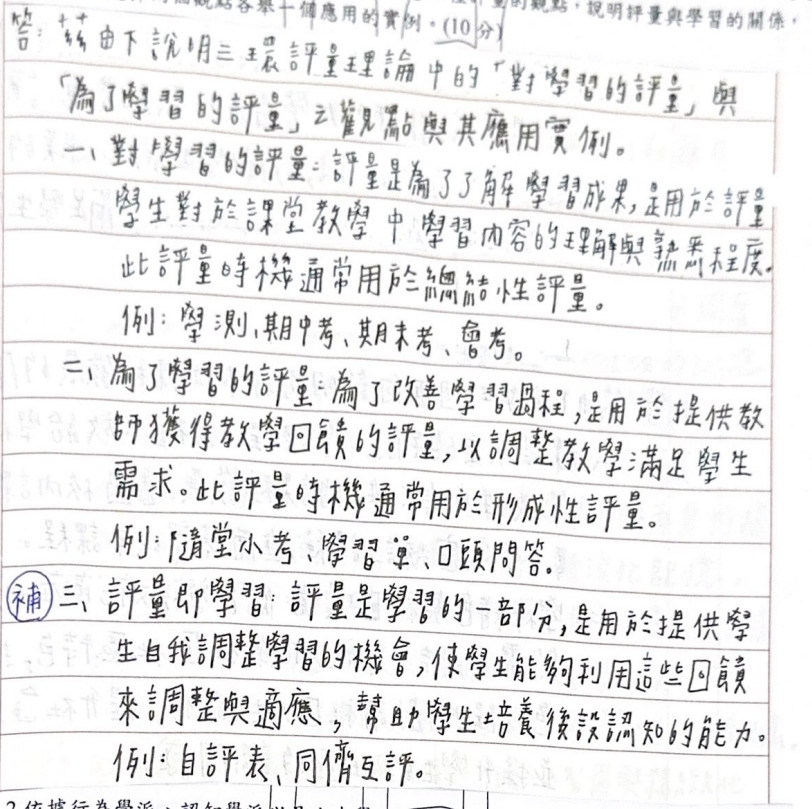 觀點各舉一個應用的實例。(10分)
的觀點，說明評量與學習的關係，
答：茲由下說明三環評量理論中的「對學習的評量」與
「為了學習的評量」之觀點與其應用實例。
一、對學習的評量：評量是為了了解學習成果，是用於評量
學生對於課堂教學中學習內容的理解與熟悉程度。
此評量時機通常用於總結性評量。
例：學測、期中考、期末考、會考。
二、為了學習的評量：為了改善學習過程，是用於提供教
師獲得教學回饋的評量，以調整教學滿足學生
需求。此評量時機通常用於形成性評量。
例：隨堂小考、學習單、口頭問答。
補 三、評量即學習：評量是學習的一部分，是用於提供學
生自我調整學習的機會，使學生能夠利用這些回饋
來調整與適應，幫助學生培養後設認知的能力。
例：自評表、同儕互評。